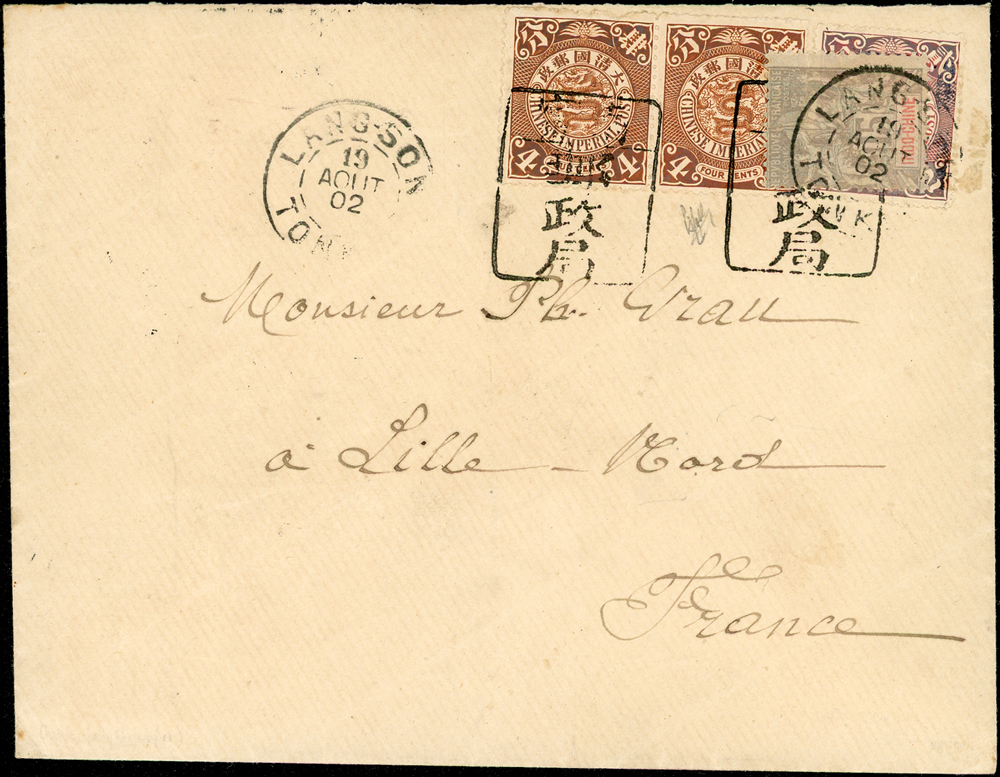 分 肆
大清國郵政
CHINESE IMPERIAL POST
4 4
分
大清國郵政
CHINESE IMPERIAL
4 FOUR CENTS
REPUBLIQUE FRANCAISE
LANG-SON
19
AOUT
02
政
局
政
局
LANG-SON
19
AOUT
02
TONK
Monsieur Ph. Vrau
à Lille - Nord
France